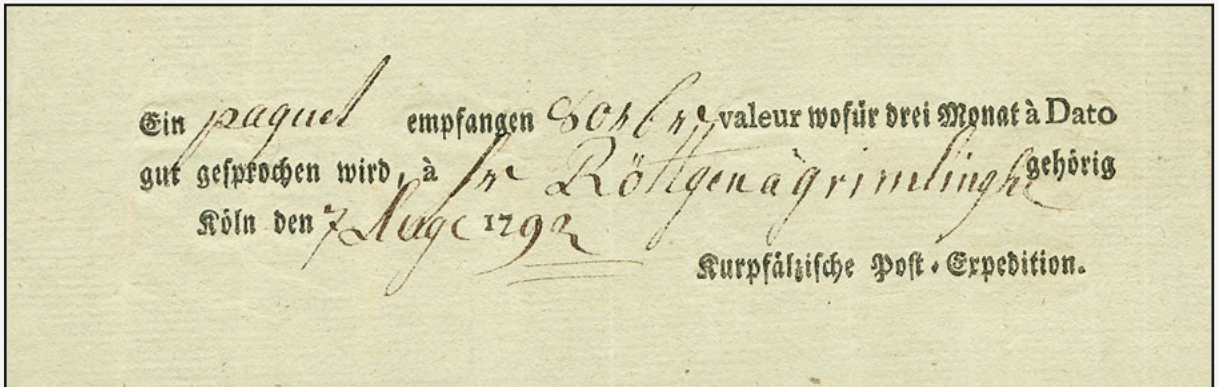 Ein paquet empfangen valeur wofür drei Monat à Dato
gut gesprochen wird, à Sr Röttgen à grimlingh gehörig
Köln den 7 Augt 1792
Kurpfälzische Post-Expedition.